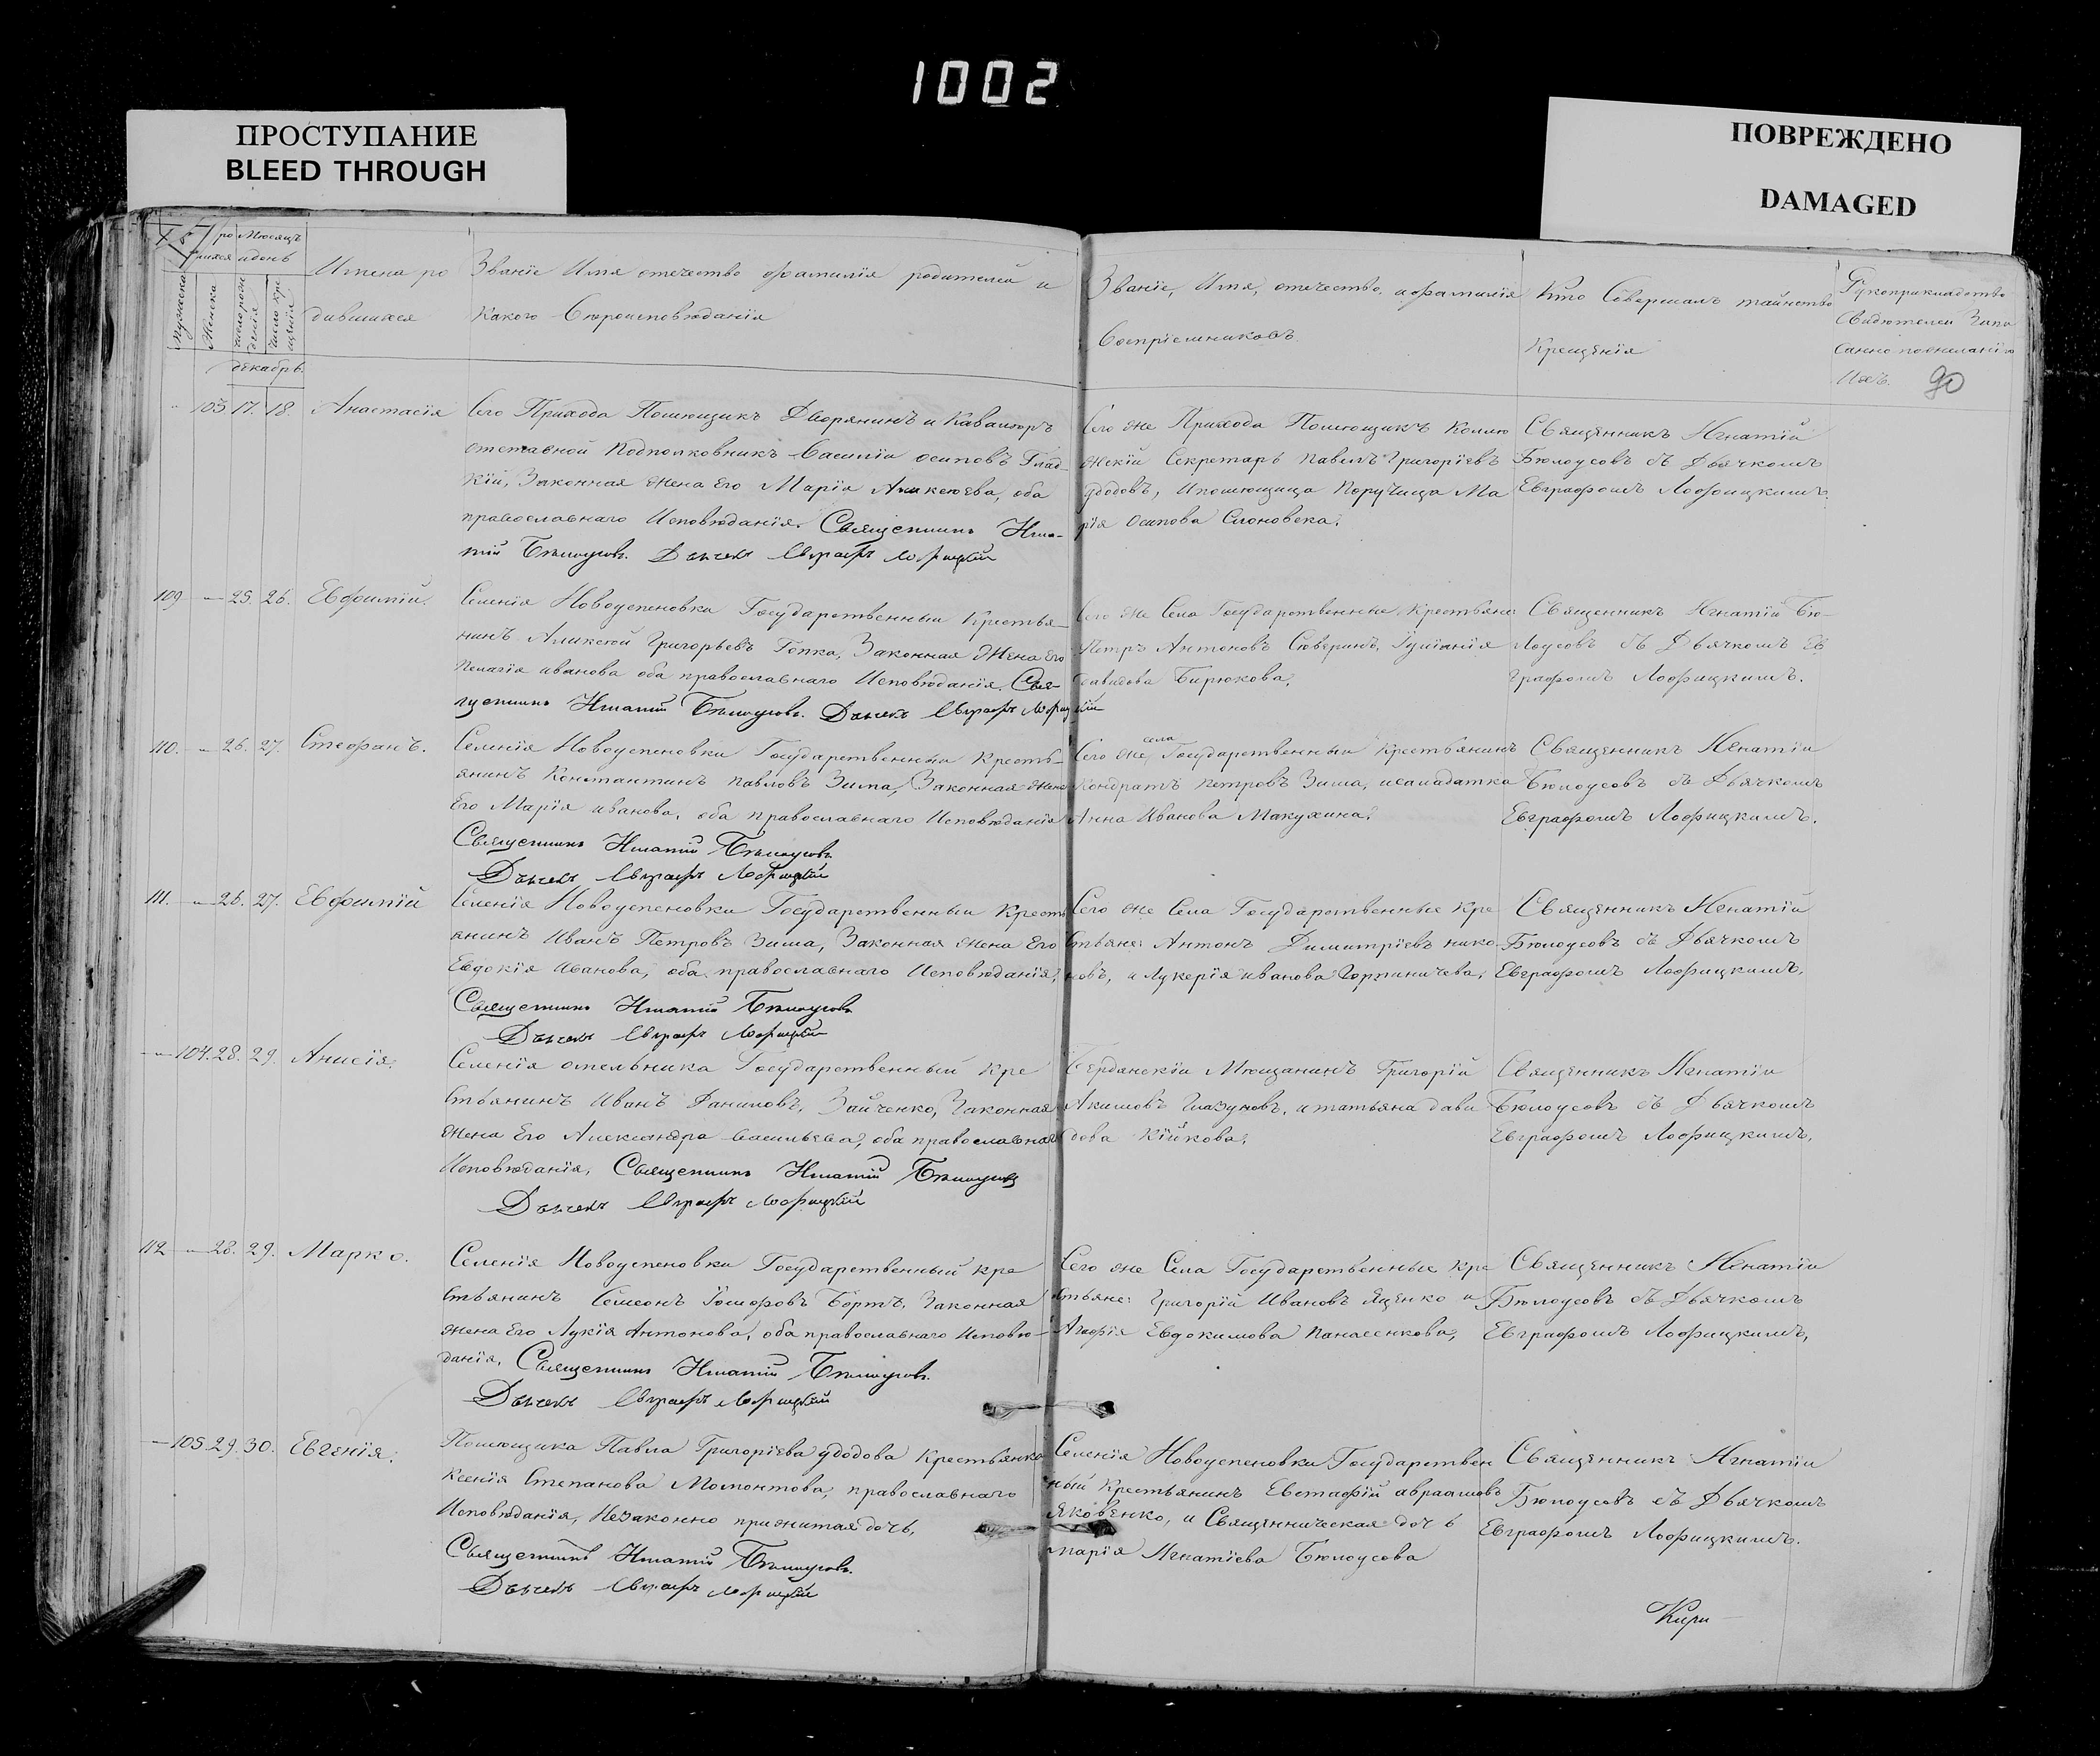 1002
ПРОСТУПАНИЕ
BLEED THROUGH
ПОВРЕЖДЕНО
DAMAGED
Мѣсяцъ
и день
Мужеска
Женска
число рож
денія
число кре
щенія
Имена ро
дившихся
Званіе Имя отечество фамилія родителей и
какого Вѣроисповѣданія
Званіе, Имя, отечество, и фамилія
Воспріемниковъ
Кто Совершалъ таинство
Крещенія
Рукоприкладство
Свидѣтелей Запи
санно пожеланію
Ихъ.
90
декабрь
103. 17. 18. Анастасія
Сего Прихода Помѣщикъ Дворянинъ и Кавалеръ
отставной Подполковникъ Василій осиповъ Глад-
кій, Законная жена Его Марія Алексѣева, оба
православнаго Исповѣданія. Священникъ Игна-
тій Бѣлоусовъ. Дьячекъ Евграфъ Лофицкій
Сего же Прихода Помѣщикъ Колле
жскій Секретарь Павелъ Григоріевъ
Удодовъ, и помѣщица Поручица Ма
рія Осипова Слоновска.
Священникъ Игнатій
Бѣлоусовъ съ Дьячкомъ
Евграфомъ Лофицкимъ.
109 — 25. 26. Евфимій.
Селенія Новоуспеновка Государственный Крестья-
нинъ Аликсей Григорьевъ Гопка, Законная Жена его
Пелагія иванова оба православнаго Исповѣданія. Свя-
щенникъ Игнатій Бѣлоусовъ. Дьячекъ Евграфъ Лофицкій
Сего же Села Государственные Крестьяне:
Петръ Антоновъ Сѣверинъ, Гуліанія
давидова Бирюкова,
Священникъ Игнатій Бѣ-
лоусовъ съ Дьячкомъ Ев
графомъ Лофицкимъ.
110. — 26. 27. Стефанъ.
Селенія Новоуспеновки Государственный Кресть-
янинъ Константинъ павловъ Зима, Законная жена
Его Марія иванова, оба православнаго Исповѣданія
Священникъ Игнатій Бѣлоусовъ
Дьячекъ Евграфъ Лофицкій
Сего же села Государственный Крестьянинъ
Кондратъ петровъ Зима, и салдатка
Анна Иванова Макухина.
Священникъ Игнатій
Бѣлоусовъ съ Дьячкомъ
Евграфомъ Лофицкимъ.
111. — 26. 27. Евфимій
Селенія Новоуспеновки Государственный Кресть
янинъ Иванъ Петровъ Зима, Законная жена Его
Евдокія Иванова, оба православнаго Исповѣданія,
Священникъ Игнатій Бѣлоусовъ
Дьячекъ Евграфъ Лофицкій
Сего же Села Государственные Кре
стьяне: Антонъ Димитріевъ нико
новъ, и Лукерія иванова
Священникъ Игнатій
Бѣлоусовъ съ Дьячкомъ
Евграфомъ Лофицкимъ.
— 104. 28. 29. Анисія.
Селенія омельника Государственный Кре
стьянинъ Иванъ Даниловъ, Зайченко, Законная
жена Его Александра васильева, оба православнаго
Исповѣданія, Священникъ Игнатій Бѣлоусовъ
Дьячекъ Евграфъ Лофицкій
Бердянскій Мѣщанинъ Григорій
Акимовъ Глазуновъ, и татьяна дави
дова Кійкова,
Священникъ Игнатій
Бѣлоусовъ съ Дьячкомъ
Евграфомъ Лофицкимъ,
112 — 28. 29. Марко.
Селенія Новоуспеновки Государственный кре
стьянинъ Семеонъ Бортъ, Законная
жена Его Лукія Антонова, оба православнаго Исповѣ-
данія, Священникъ Игнатій Бѣлоусовъ.
Дьячекъ Евграфъ Лофицкій
Сего же Села Государственные кре
стьяне: Григорій Ивановъ Яценко и
Агафія Евдокимова Панасенкова,
Священникъ Игнатій
Бѣлоусовъ съ Дьячкомъ
Евграфомъ Лофицкимъ,
— 105. 29. 30. Евгенія.
Помѣщика Павла Григоріева Удодова Крестьянка
Ксенія Степанова Момонтова, православнаго
Исповѣданія, Незаконно прижитая дочь,
Священникъ Игнатій Бѣлоусовъ.
Дьячекъ Евграфъ Лофицкій
Селенія Новоуспеновки Государствен
ный Крестьянинъ Евстафій авраамовъ
Яковенко, и Священническая дочь
марія Игнатіева Бѣлоусова
Священникъ Игнатій
Бѣлоусовъ съ Дьячкомъ
Евграфомъ Лофицкимъ.
Кири